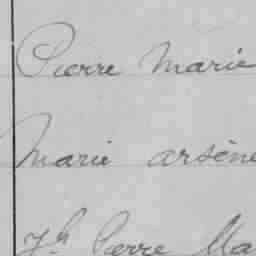 Pierre Marie
Marie arsène
Jh Pierre Ma